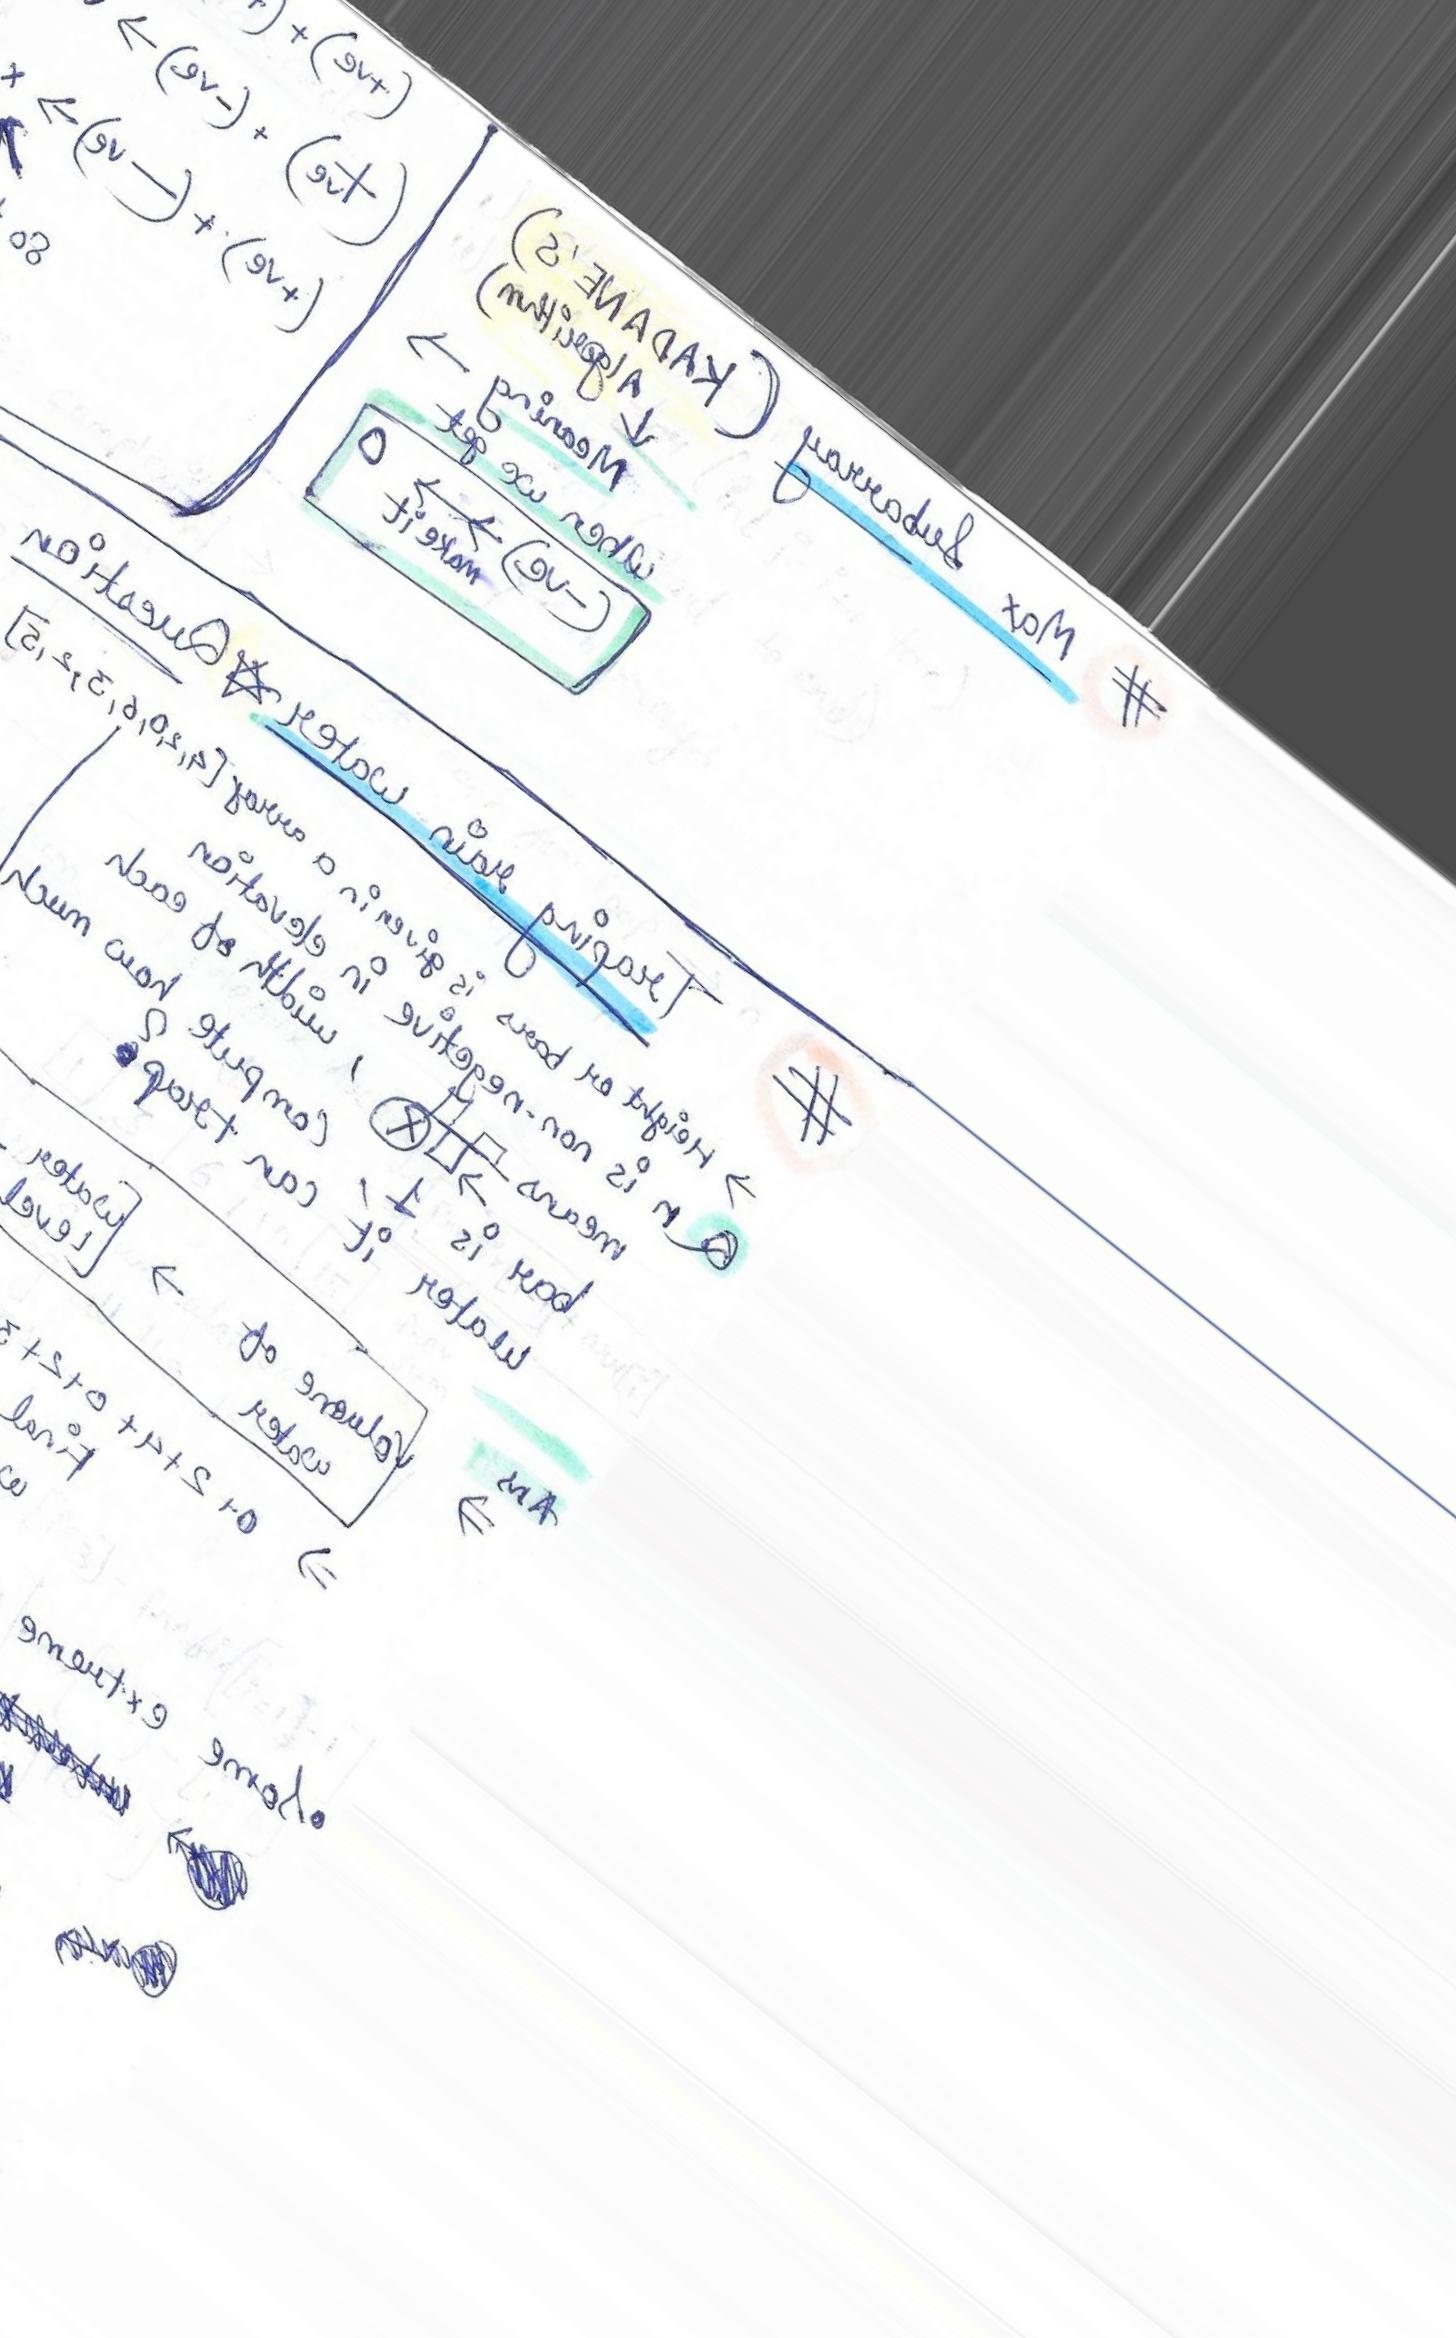 # Max Subarray (KADANE'S)
Algorithm)
Meaning →
when we get
(-ve) →
make it
0
(+ve) + (
(+ve) + (-ve) →
(+ve) + (-ve) ⇒ +
# Traping rain water ☆ Question
> Height or bars is given in a array [4,2,0,6,3,2,5]
Q n is non-negative in elevation
means → , width of each
bar is 1, compute how much
water it can trap?
Ans ⇒
volume of → [water
water level
⇒ 0+2+4+0+2+3
Final
• Some extreme